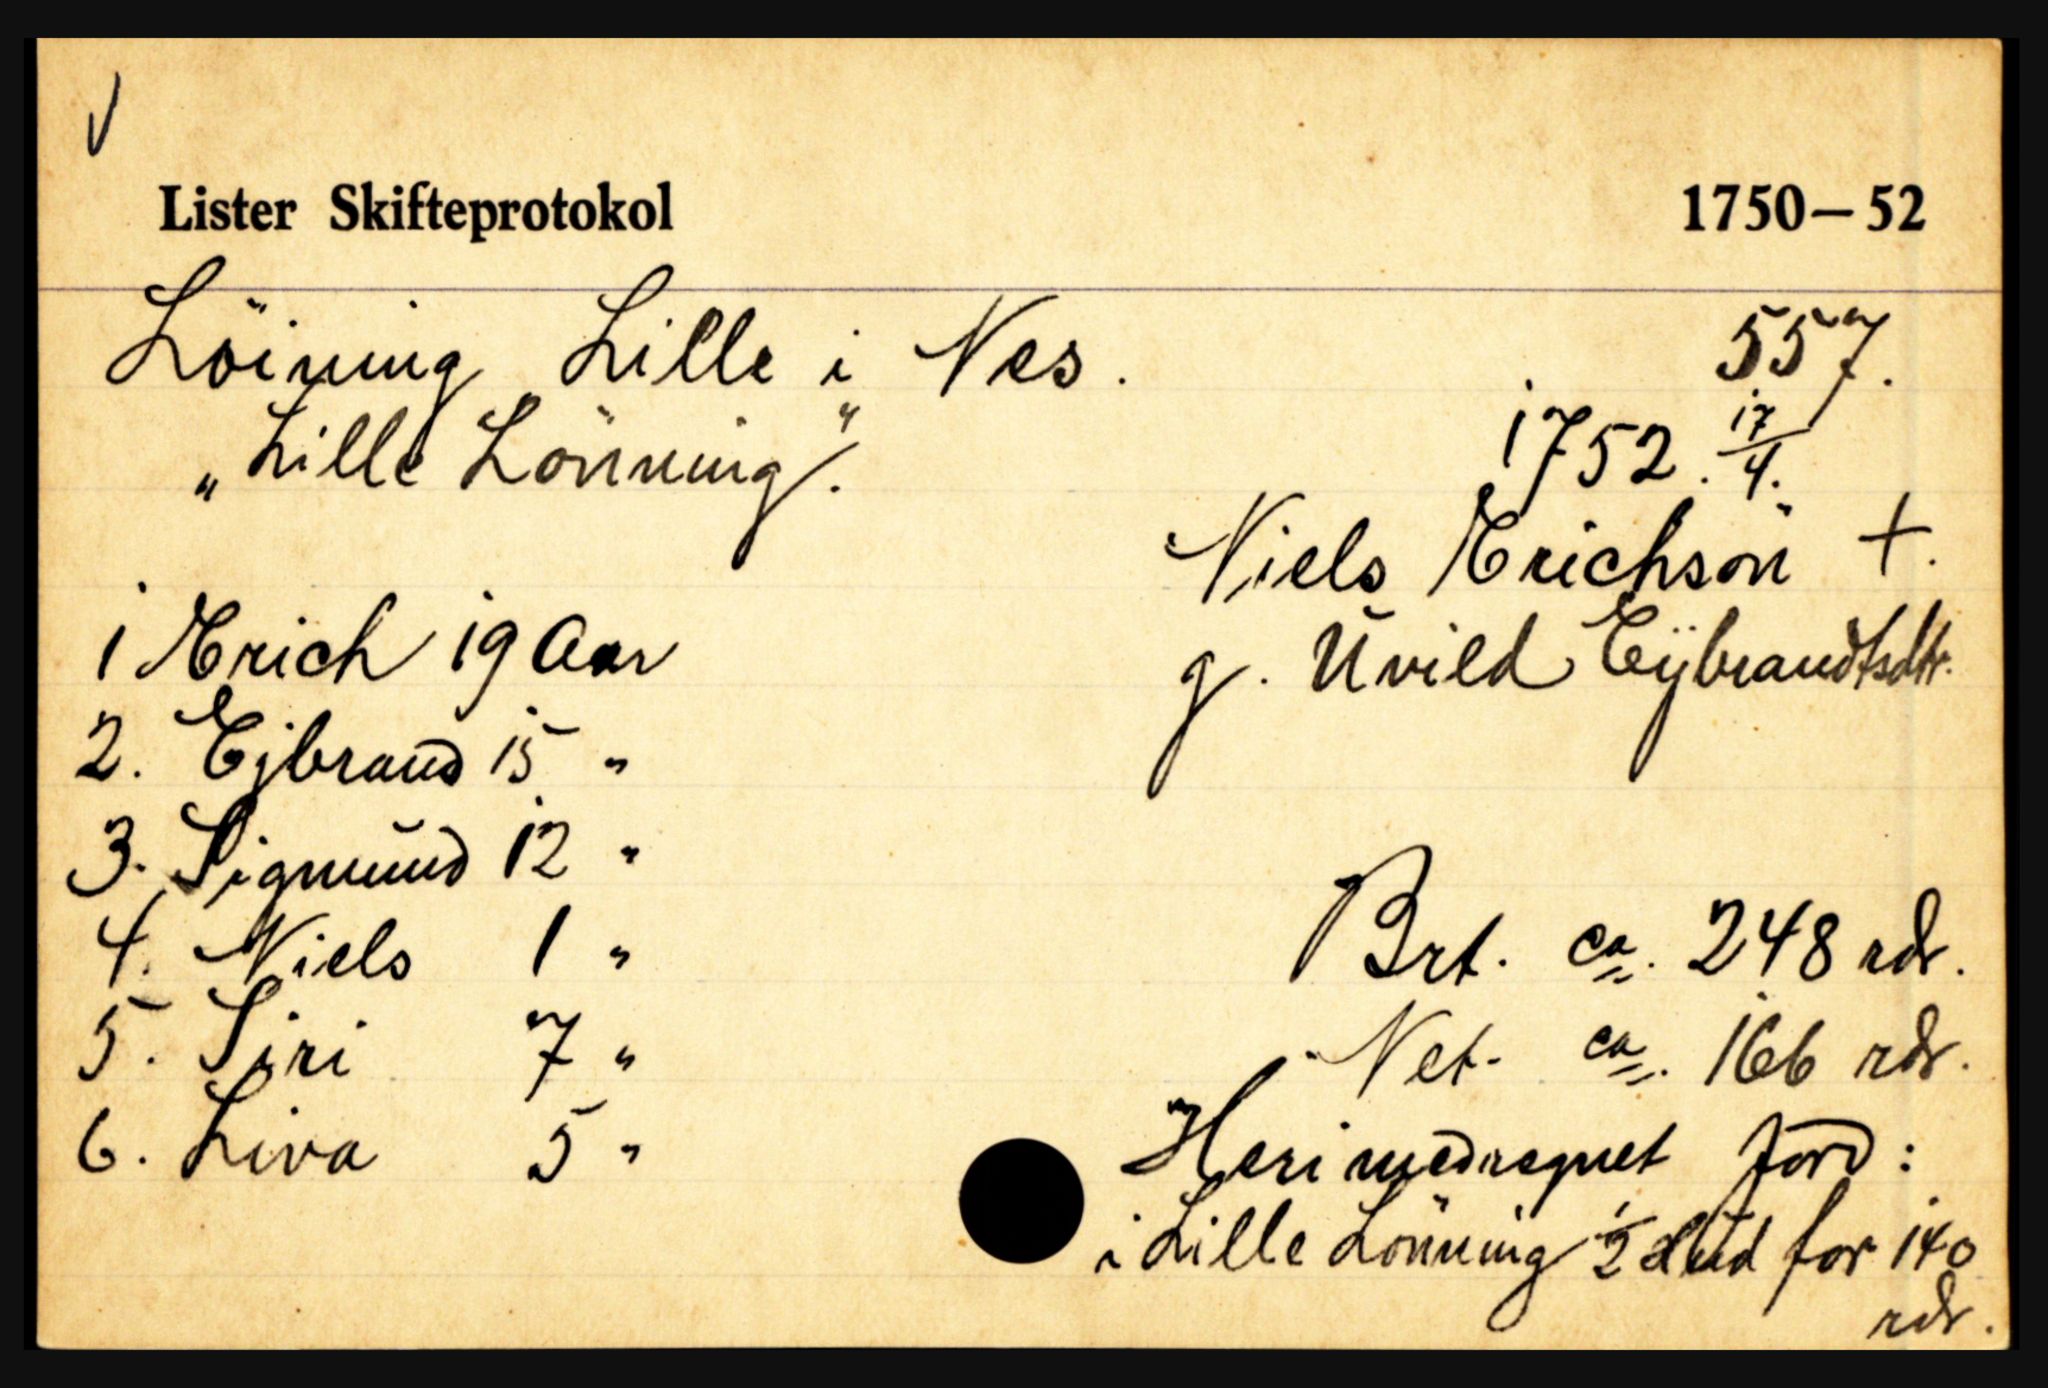 V
Lister Skifteprotokol 1750–52
Löining Lille i Nes. 557.
„Lille Lönning". 1752. 17/4.
Niels Erichsön +.
g. Uvild Eÿbrandtsdtr.
1 Erich 19 Aar
2. Ejbrand 15 "
3. Sigmund 12 "
4. Niels 1 "
5. Siri 7 "
6. Liva 5 "
Brt. ca. 248 rdr.
Net. ca. 166 rdr.
Heri medregnet Jord:
i Lille Lönning 1/2 Hud for 140
rdr.